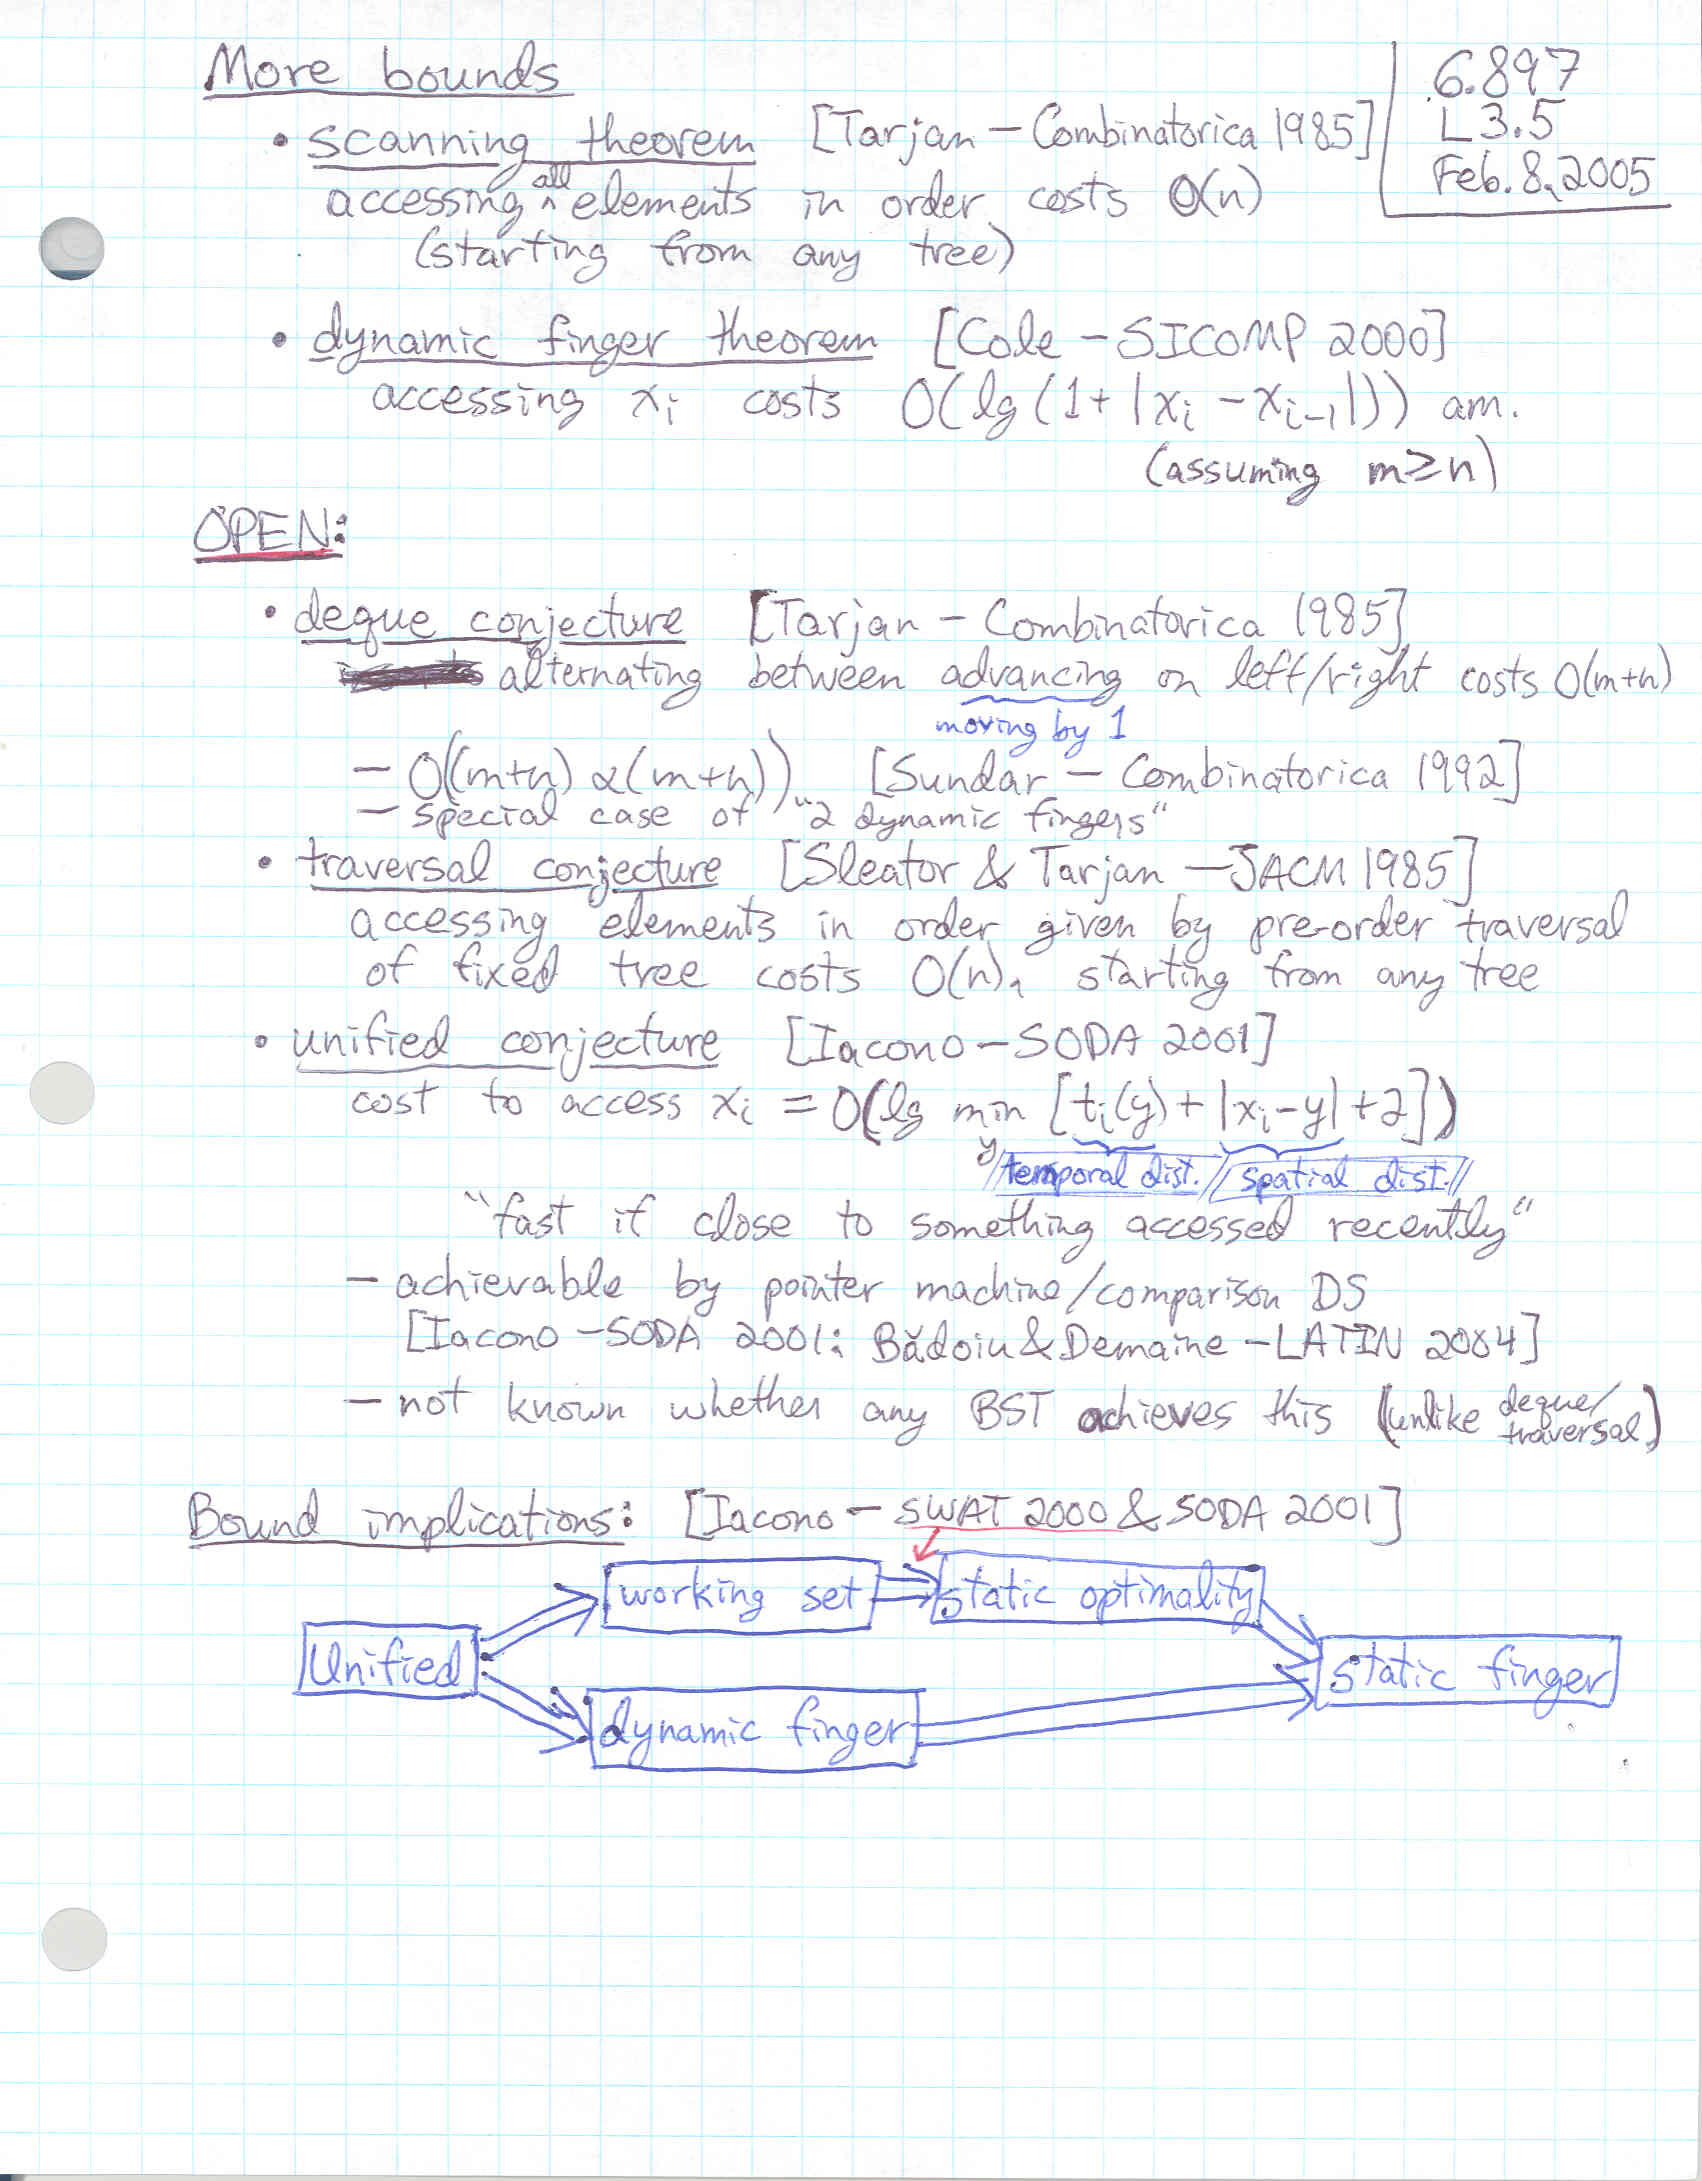 More bounds
6.897
L3.5
Feb. 8, 2005
• scanning theorem [Tarjan – Combinatorica 1985]
accessing all elements in order costs O(n)
(starting from any tree)
• dynamic finger theorem [Cole – SICOMP 2000]
accessing xᵢ costs O(lg (1+|xᵢ – xᵢ₋₁|)) am.
(assuming m≥n)
OPEN:
• deque conjecture [Tarjan – Combinatorica 1985]
alternating between advancing on left/right costs O(m+n)
moving by 1
– O((m+n) α(m+n)) [Sundar – Combinatorica 1992]
– special case of "2 dynamic fingers"
• traversal conjecture [Sleator & Tarjan – JACM 1985]
accessing elements in order given by pre-order traversal
of fixed tree costs O(n), starting from any tree
• unified conjecture [Iacono – SODA 2001]
cost to access xᵢ = O(lg min [tᵢ(y) + |xᵢ-y| + 2])
y temporal dist. spatial dist.
"fast if close to something accessed recently"
– achievable by pointer machine/comparison DS
[Iacono – SODA 2001; Bădoiu & Demaine – LATIN 2004]
– not known whether any BST achieves this (unlike deque/traversal)
Bound implications: [Iacono – SWAT 2000 & SODA 2001]
working set ⇒ static optimality
Unified
static finger
dynamic finger